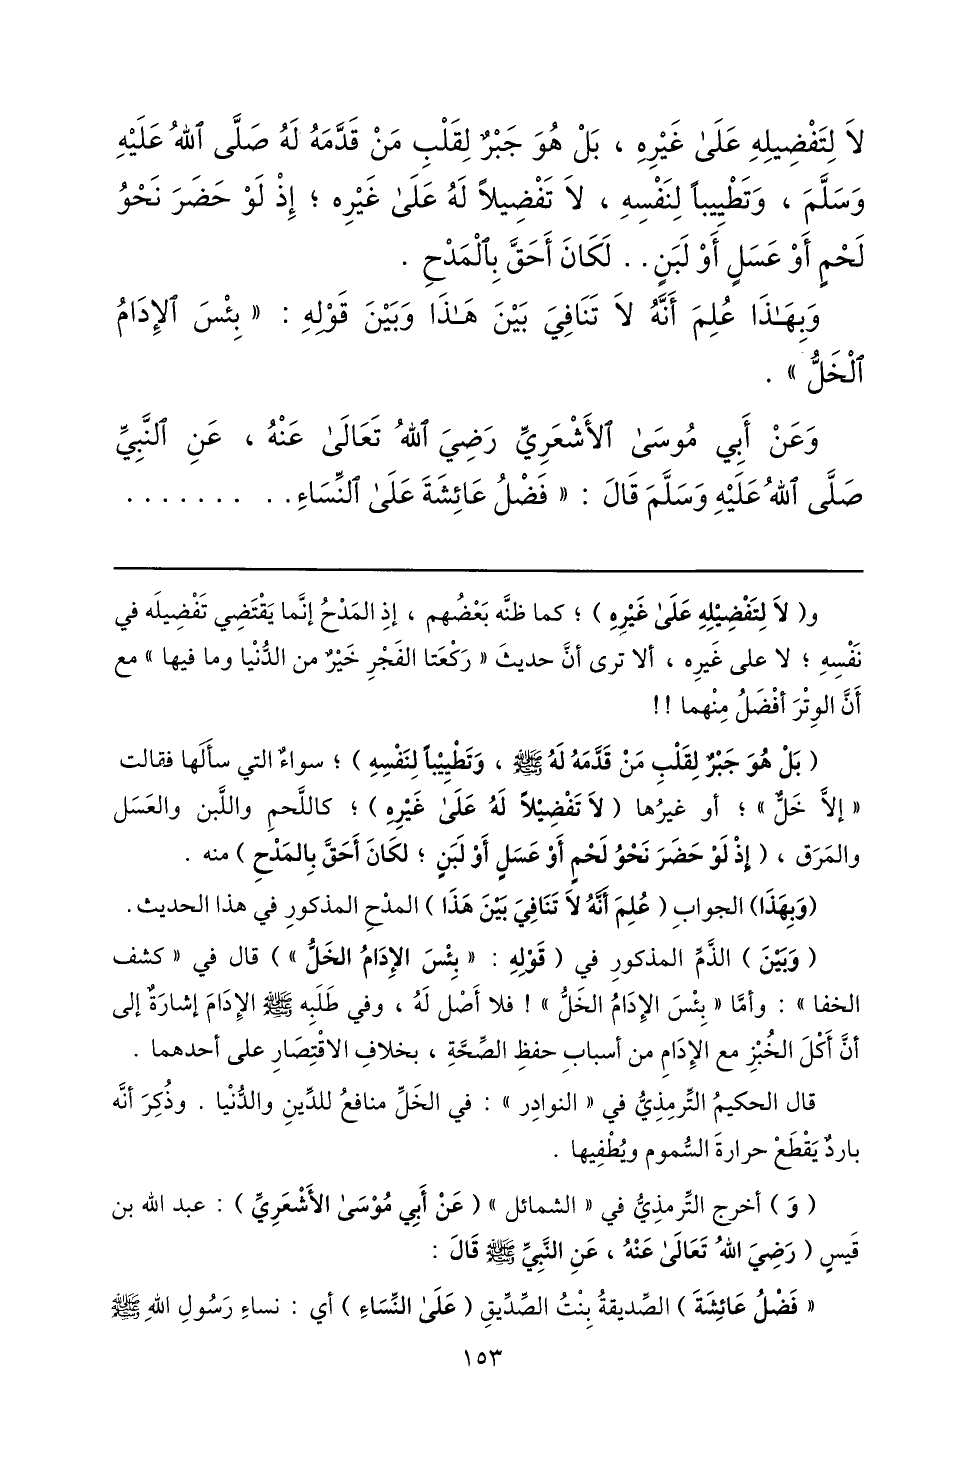 لاَ لِتَفْضِيلِهِ عَلَىٰ غَيْرِهِ ، بَلْ هُوَ جَبْرٌ لِقَلْبِ مَنْ قَدَّمَهُ لَهُ صَلَّى ٱللهُ عَلَيْهِ
وَسَلَّمَ ، وَتَطْيِيباً لِنَفْسِهِ ، لاَ تَفْضِيلاً لَهُ عَلَىٰ غَيْرِه ؛ إِذْ لَوْ حَضَرَ نَحْوُ
لَحْمٍ أَوْ عَسَلٍ أَوْ لَبَنٍ . . لَكَانَ أَحَقَّ بِٱلْمَدْحِ .
وَبِهَـٰذَا عُلِمَ أَنَّهُ لاَ تَنَافِيَ بَيْنَ هَـٰذَا وَبَيْنَ قَوْلِهِ : « بِئْسَ ٱلإِدَامُ
ٱلْخَلُّ » .
وَعَنْ أَبِي مُوسَىٰ ٱلأَشْعَرِيِّ رَضِيَ ٱللهُ تَعَالَىٰ عَنْهُ ، عَنِ ٱلنَّبِيِّ
صَلَّى ٱللهُ عَلَيْهِ وَسَلَّمَ قَالَ : « فَضْلُ عَائِشَةَ عَلَىٰ ٱلنِّسَاءِ . . . . . . . . .
و( لاَ لِتَفْضِيْلِهِ عَلَىٰ غَيْرِهِ ) ؛ كما ظنَّه بَعْضُهم ، إذِ المَدْحُ إنَّما يَقْتَضِي تَفْضِيلَه في
نَفْسِهِ ؛ لا على غَيرِه ، ألا ترى أنَّ حديثَ « رَكْعَتا الفَجْرِ خَيْرٌ من الدُّنْيا وما فيها » مع
أَنَّ الوِتْرَ أفْضَلُ مِنْهما !!
( بَلْ هُوَ جَبْرٌ لِقَلْبِ مَنْ قَدَّمَهُ لَهُ ﷺ ، وَتَطْيِيْباً لِنَفْسِهِ ) ؛ سواءٌ التي سألَها فقالت
« إلاَّ خَلٌّ » ؛ أو غيرُها ( لاَ تَفْضِيْلاً لَهُ عَلَىٰ غَيْرِهِ ) ؛ كاللَّحمِ واللَّبن والعَسَل
والمَرَق ، ( إِذْ لَوْ حَضَرَ نَحْوُ لَحْمٍ أَوْ عَسَلٍ أَوْ لَبَنٍ ؛ لكَانَ أَحَقَّ بِالمَدْحِ ) منه .
(وَبِهَذَا) الجوابِ ( عُلِمَ أَنَّهُ لاَ تَنَافِيَ بَيْنَ هَذَا ) المدْحِ المذكورِ في هذا الحديث .
( وَبَيْنَ ) الذَّمِّ المذكورِ في ( قَوْلِهِ : « بِئْسَ الإِدَامُ الخَلُّ » ) قال في « كشف
الخفا » : وأمَّا « بِئْسَ الإِدَامُ الخَلُّ » ! فلا أَصْل لَهُ ، وفي طَلَبِه ﷺ الإِدَامَ إشارَةٌ إلى
أنَّ أكْلَ الخُبْزِ مع الإِدَامِ من أسبابِ حفظِ الصِّحَّةِ ، بخلافِ الاقْتِصَارِ على أحدهما .
قال الحكيمُ التِّرمِذِيُّ في « النوادِر » : في الخَلِّ منافعُ للدِّينِ والدُّنْيا . وذُكِرَ أنَّه
باردٌ يَقْطَعْ حرارةَ السُّموم ويُطْفِيها .
( وَ ) أخرج التِّرمذيُّ في « الشمائل » ( عَنْ أَبِي مُوْسَىٰ الأَشْعَرِيِّ ) : عبد الله بن
قَيسٍ ( رَضِيَ اللهُ تَعَالَىٰ عَنْهُ ، عَنِ النَّبِيِّ ﷺ قَالَ :
« فَضْلُ عَائِشَةَ ) الصِّديقةُ بِنْتُ الصِّدِّيقِ ( عَلَىٰ النِّسَاءِ ) أي : نساءِ رَسُولِ اللهِ ﷺ
١٥٣